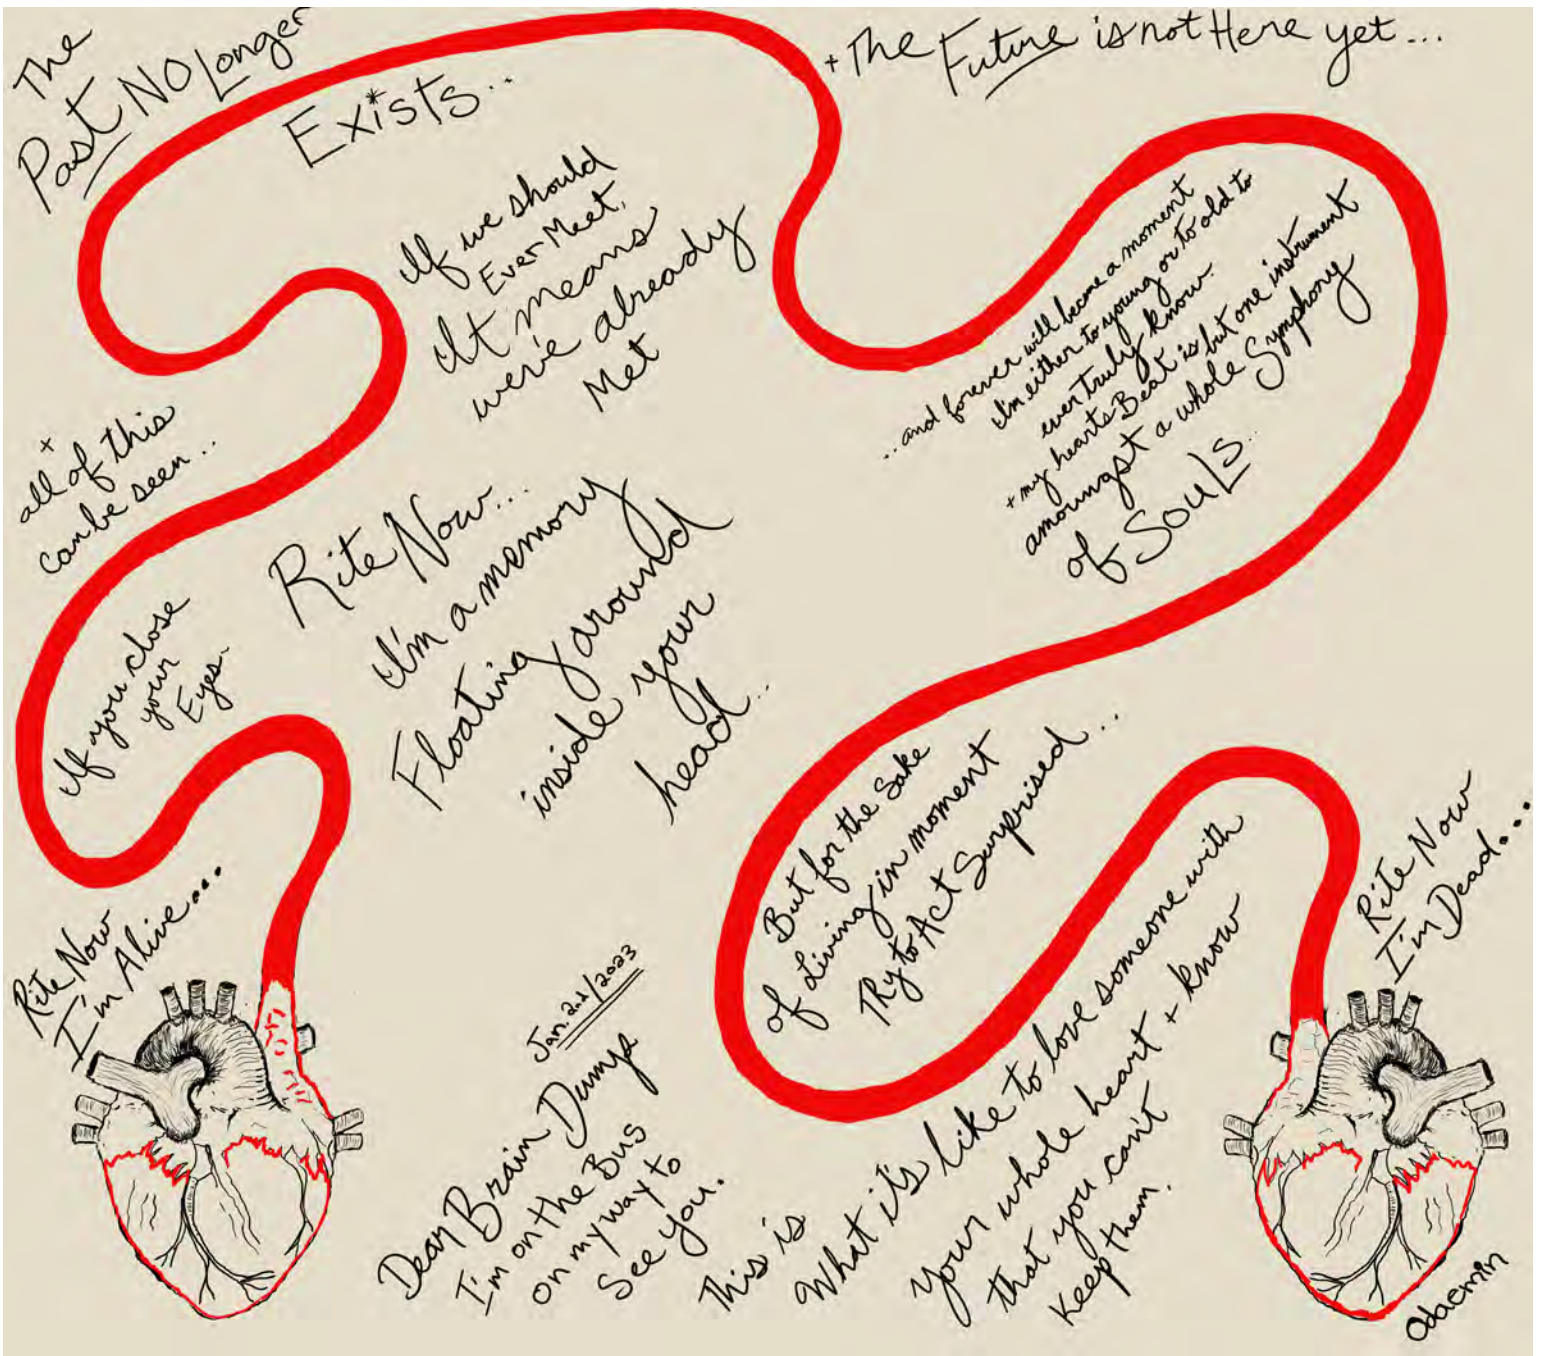 The
Past NO Longer
Exists...
+ The Future is not Here yet...
If we should
Ever Meet,
It means
we've already
Met
...and forever will become a moment
I'm either to young or to old to
ever truly know.
+ my hearts Beat is but one instrument
amoungst a whole Symphony
of Souls...
all + of this
can be seen...
If you close
your
Eyes.
Rite Now...
I'm a memory
Floating around
inside your
head...
But for the Sake
of Living in moment
TRy to Act Surprised...
Rite Now
I'm Alive...
Rite Now
I'm Dead...
Jan. 2nd/2023
Dear Brain Dumps
I'm on the Bus
on my way to
See you.
This is
What it's like to love someone with
your whole heart + know
that you can't
Keep them.
Odaemin